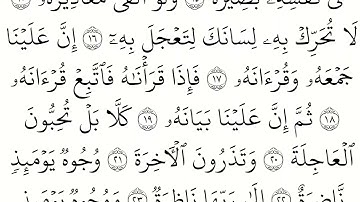 نَفْسِهِۦ بَصِيرَةٌ ۝١٤ وَلَوْ أَلْقَىٰ مَعَاذِيرَهُۥ ۝١٥
لَا تُحَرِّكْ بِهِۦ لِسَانَكَ لِتَعْجَلَ بِهِۦٓ ۝١٦ إِنَّ عَلَيْنَا
جَمْعَهُۥ وَقُرْءَانَهُۥ ۝١٧ فَإِذَا قَرَأْنَٰهُ فَٱتَّبِعْ قُرْءَانَهُۥ
۝١٨ ثُمَّ إِنَّ عَلَيْنَا بَيَانَهُۥ ۝١٩ كَلَّا بَلْ تُحِبُّونَ
ٱلْعَاجِلَةَ ۝٢٠ وَتَذَرُونَ ٱلْأَخِرَةَ ۝٢١ وُجُوهٌ يَوْمَئِذٍ
نَّاضِرَةٌ ۝٢٢ إِلَىٰ رَبِّهَا نَاظِرَةٌ ۝٢٣ وَوُجُوهٌ يَوْمَئِذٍ